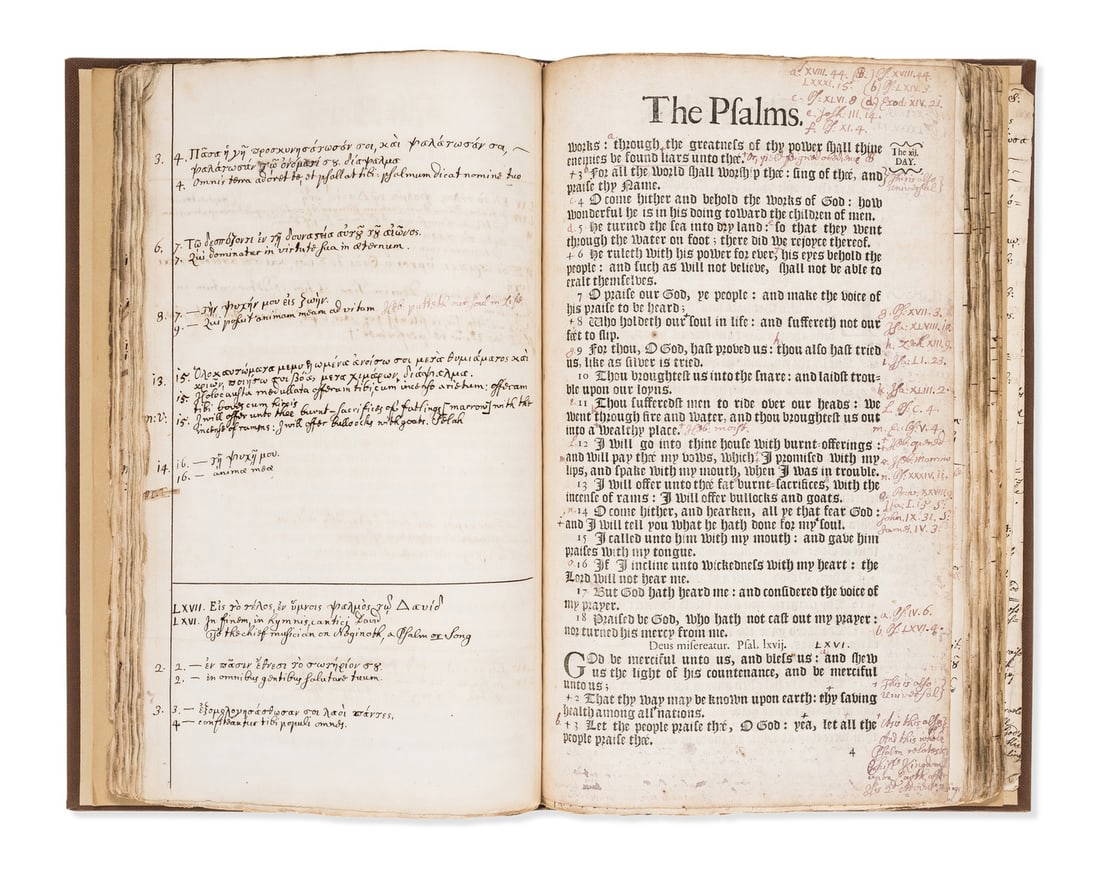 3. 4. Πᾶσα ἡ γῆ προσκυνησάτωσάν σοι, καὶ ψαλάτωσάν σοι,
ψαλάτωσαν τῷ ὀνόματί σου. διάψαλμα
4. Omnis terra adoret te, et psallat tibi: psalmum dicat nomine tuo
6. 7. Τῷ δεσπόζοντι ἐν τῇ δυναστείᾳ αὐτοῦ τοῦ αἰῶνος.
7. Qui dominatur in virtute sua in æternum.
8. 7. — τὴν ψυχήν μου εἰς ζωήν.
9. — Qui posuit animam meam ad vitam Heb. putteth our soul in life
13. 15. Ὁλοκαυτώματα μεμυελωμένα ἀνοίσω σοι μετὰ θυμιάματος καὶ
κριῶν, ποιήσω σοι βόας μετὰ χιμάρων. διάψαλμα.
15. Holocausta medullata offeram tibi cum incenso arietum: offeram
tibi boves cum hircis
m.v: 15. I will offer unto thee burnt-sacrifices of fatlings [marrow] with the
incense of rams: I will offer bullocks with goats. Selah
14. 16. — τῇ ψυχῇ μου.
16. — animæ meæ
LXVII. Εἰς τὸ τέλος, ἐν ὕμνοις ψαλμὸς τῷ Δαυίδ
LXVI. In finem, in hymnis, cantici David
To the chief musician on Neginoth, a Psalm or Song
2. 2. — ἐν πᾶσιν ἔθνεσι τὸ σωτήριόν σου
2. — in omnibus gentibus salutare tuum.
3. 3. — ἐξομολογησάσθωσάν σοι λαοὶ πάντες.
4 — confiteantur tibi populi omnes.
a. XVIII. 44. (B.) Ps. XVIII. 44
LXXXI. 15. (b) Ps. LXIV. 3
c. Ps. XLVI. 8 (d) Exod. XIV. 21.
e. Josh. III. 14.
f. Ps. XI. 4.
The Pſalms.
works: through the greatneſs of thy power ſhall thine
enemies be found liars unto thee.
The xij.
DAY.
3 For all the world ſhall worſhip thee: ſing of thee, and
praiſe thy Name.
This is also
Universal
4 O come hither and behold the works of God: how
wonderful he is in his doing toward the children of men.
5 He turned the ſea into dry land: ſo that they went
through the water on foot; there did we rejoyce thereof.
6 He ruleth with his power for ever; his eyes behold the
people: and ſuch as will not believe, ſhall not be able to
exalt themſelves.
7 O praiſe our God, ye people: and make the voice of
his praiſe to be heard;
8 Who holdeth our ſoul in life: and ſuffereth not our
feet to ſlip.
9 For thou, O God, haſt proved us: thou alſo haſt tried
us, like as ſilver is tried.
10 Thou broughteſt us into the ſnare: and laidſt trou-
ble upon our loyns.
11 Thou ſufferedſt men to ride over our heads: we
went through fire and water, and thou broughteſt us out
into a wealthy place. Heb. moist.
12 I will go into thine houſe with burnt-offerings:
and will pay thee my vows, which I promiſed with my
lips, and ſpake with my mouth, when I was in trouble.
13 I will offer unto thee fat burnt-ſacrifices, with the
incenſe of rams: I will offer bullocks and goats.
14 O come hither, and hearken, all ye that fear God:
and I will tell you what he hath done for my ſoul.
15 I called unto him with my mouth: and gave him
praiſes with my tongue.
16 If I incline unto wickedneſs with my heart: the
Lord will not hear me.
17 But God hath heard me: and conſidered the voice of
my prayer.
18 Praiſed be God, who hath not caſt out my prayer:
nor turned his mercy from me.
g. Ps. XVII. 3.
Isa: XLVIII. 10.
h. Zech XIII. 9.
i. Isa: LI. 23.
k. Isa: XLIII. 2.
l. Ps. C. 4.
Heb. opened
n. Ps. XXXIV. 11.
John. IX. 31.
James. IV. 3.
a. Ps. IV. 6.
b. Ps. LXVII. 4.
Deus miſereatur. Pſal. lxvij. LXVI.
GOd be merciful unto us, and bleſs us: and ſhew
us the light of his countenance, and be merciful
unto us;
2 That thy way may be known upon earth: thy ſaving
health among all nations.
This is also
Universal
3 Let the people praiſe thee, O God: yea, let all the
people praiſe thee.
4
this also
And this whole
Psalm relates